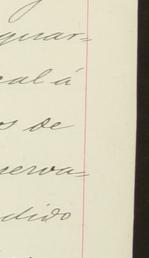 guar-
cal á
os de
serva-
dido